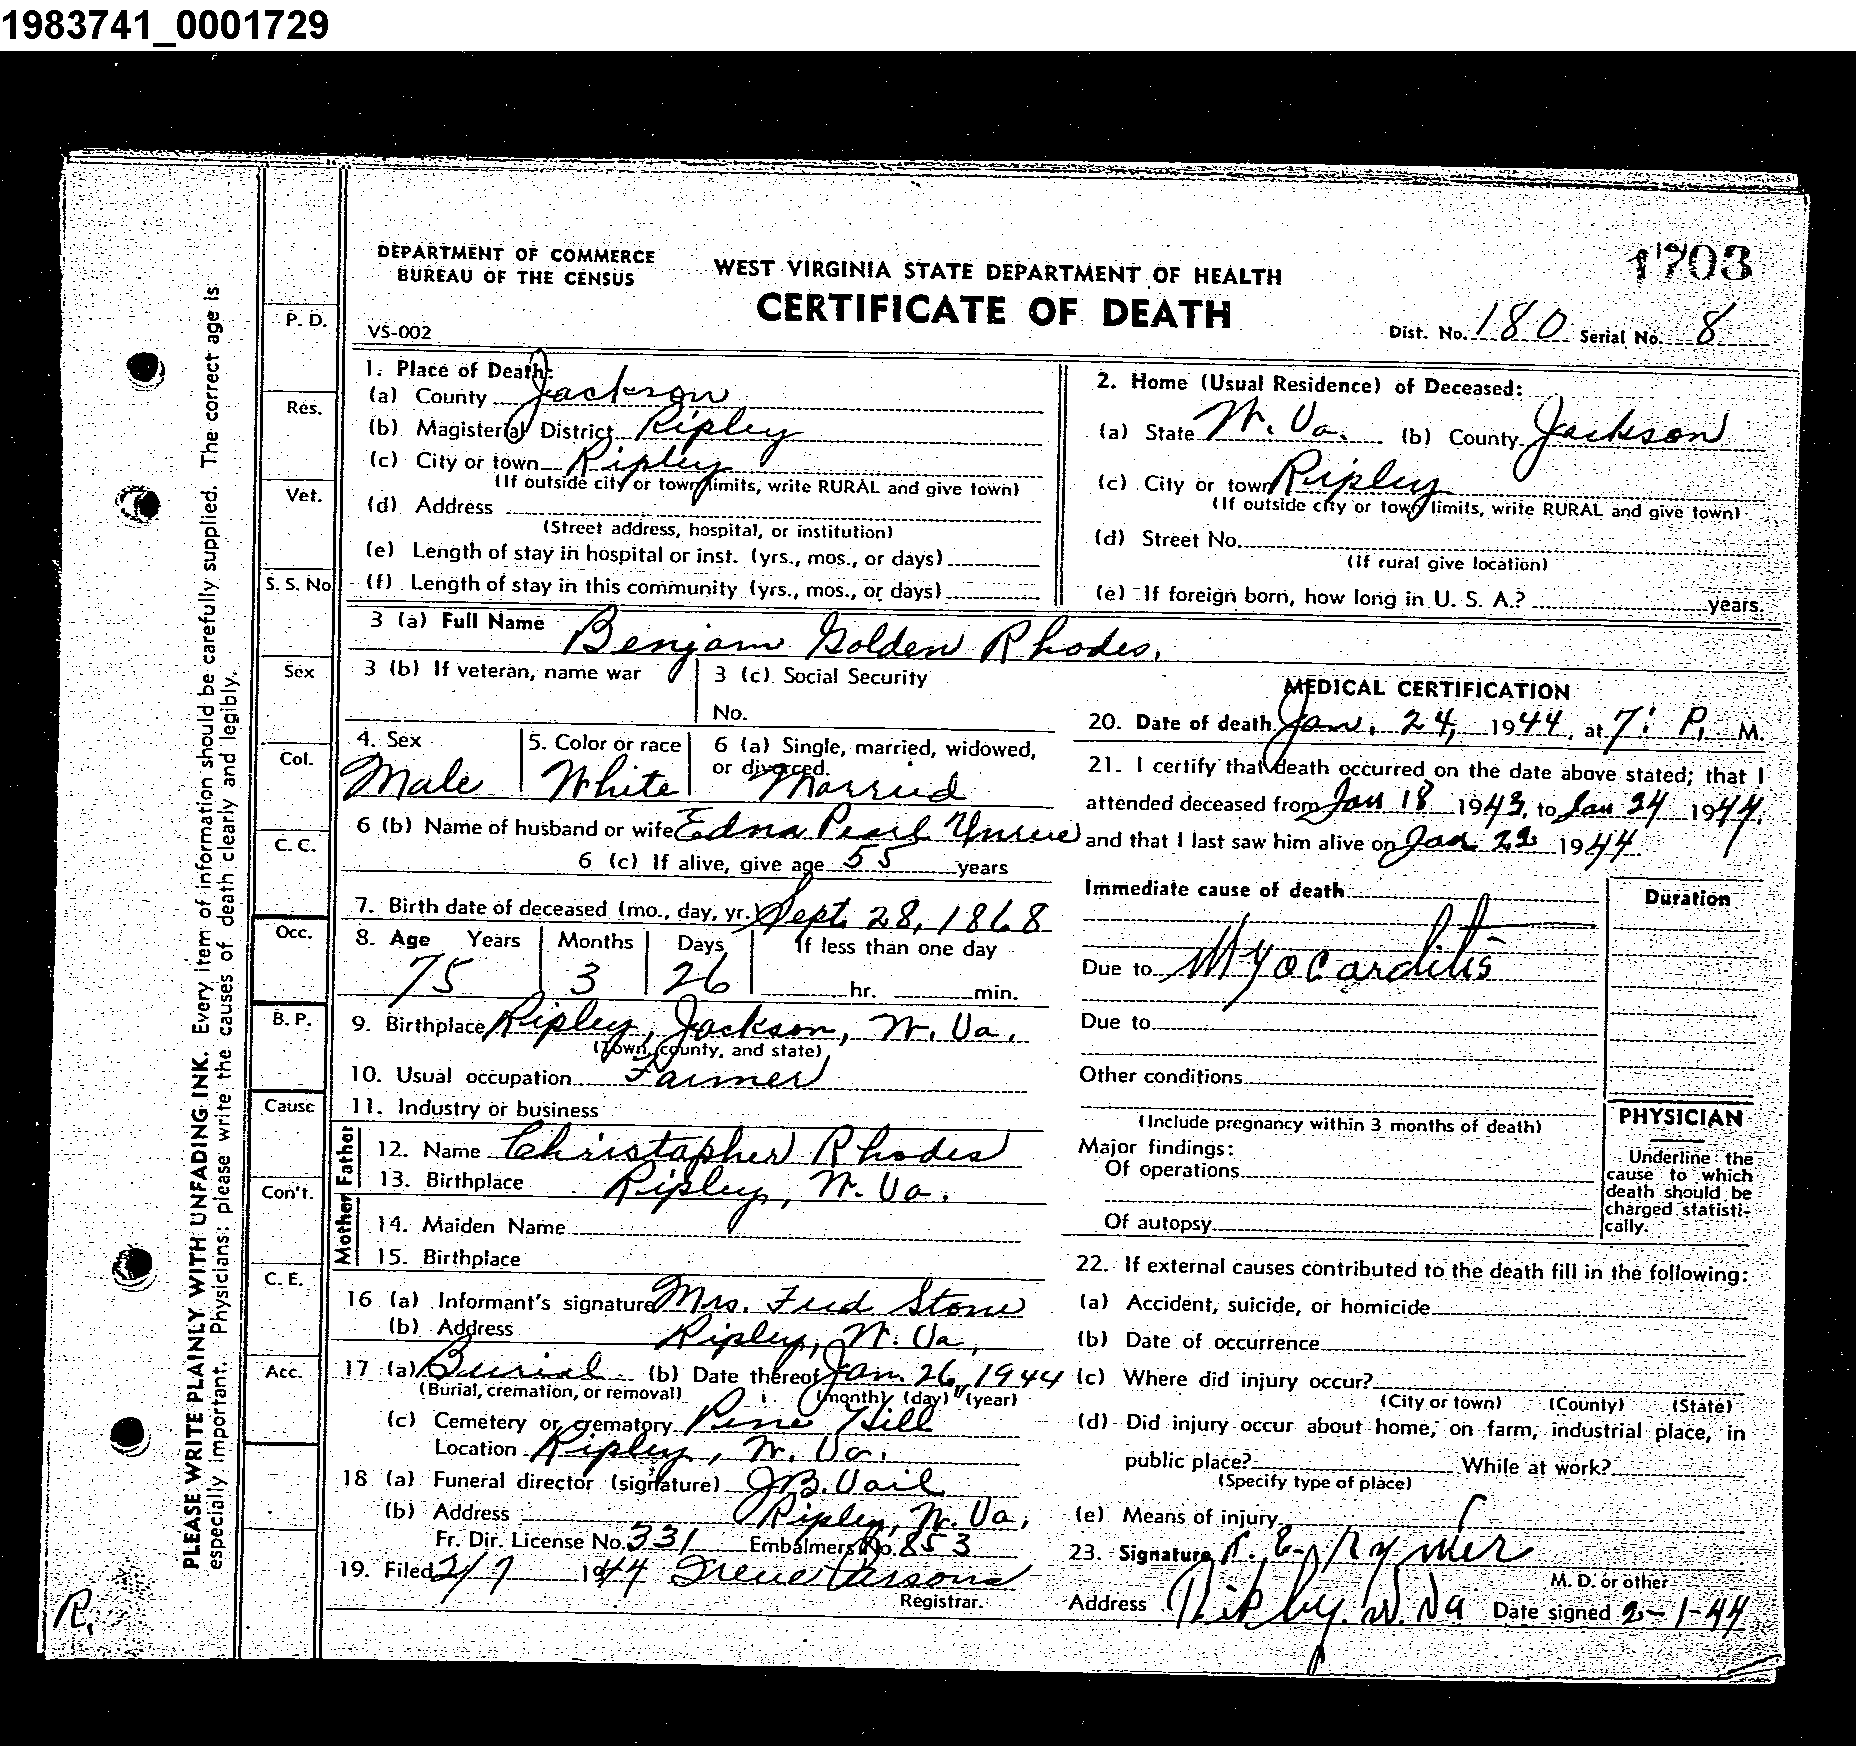 1983741_0001729
1703
DEPARTMENT OF COMMERCE
BUREAU OF THE CENSUS
WEST VIRGINIA STATE DEPARTMENT OF HEALTH
CERTIFICATE OF DEATH
VS-002
Dist. No. 180 Serial No. 8
PLEASE WRITE PLAINLY WITH UNFADING INK. Every item of information should be carefully supplied. The correct age is
especially important. Physicians: please write the causes of death clearly and legibly.
P. D.
Res.
Vet.
S. S. No
Sex
Col.
C. C.
Occ.
B. P.
Cause
Con't.
C. E.
Acc.
R.
1. Place of Death:
(a) County Jackson
(b) Magisterial District Ripley
(c) City or town Ripley
(If outside city or town limits, write RURAL and give town)
(d) Address
(Street address, hospital, or institution)
(e) Length of stay in hospital or inst. (yrs., mos., or days)
(f) Length of stay in this community (yrs., mos., or days)
2. Home (Usual Residence) of Deceased:
(a) State W. Va. (b) County Jackson
(c) City or town Ripley
(If outside city or town limits, write RURAL and give town)
(d) Street No.
(If rural give location)
(e) If foreign born, how long in U. S. A.? years
3 (a) Full Name Benjam Golden Rhodes.
3 (b) If veteran, name war
3 (c) Social Security
No.
4. Sex Male
5. Color or race White
6 (a) Single, married, widowed,
or divorced. Married
6 (b) Name of husband or wife Edna Pearl
6 (c) If alive, give age 55 years
7. Birth date of deceased (mo., day, yr.) Sept. 28, 1868
8. Age Years Months Days If less than one day
75 3 26 hr. min.
9. Birthplace Ripley, Jackson, W. Va.
(Town, county, and state)
10. Usual occupation Farmer
11. Industry or business
Father
12. Name Christapher Rhodes
13. Birthplace Ripley, W. Va.
Mother
14. Maiden Name
15. Birthplace
16 (a) Informant's signature Mrs. Fred Stone
(b) Address Ripley, W. Va.,
17 (a) Burial (b) Date thereof Jan. 26, 1944
(Burial, cremation, or removal) (month) (day) (year)
(c) Cemetery or crematory Pine Hill
Location Ripley, W. Va.
18 (a) Funeral director (signature) J.B. Vail
(b) Address Ripley, W. Va.
Fr. Dir. License No. 331 Embalmers No. 853
19. Filed 2/7 1944 Irene Parsons
Registrar.
MEDICAL CERTIFICATION
20. Date of death Jan. 24, 1944, at 7: P. M.
21. I certify that death occurred on the date above stated; that I
attended deceased from Jan 18 1943, to Jan 24 1944.
and that I last saw him alive on Jan 22 1944
Immediate cause of death
Duration
Due to Myocarditis
Due to
Other conditions
(Include pregnancy within 3 months of death)
Major findings:
Of operations
Of autopsy
PHYSICIAN
Underline the
cause to which
death should be
charged statisti-
cally.
22. If external causes contributed to the death fill in the following:
(a) Accident, suicide, or homicide
(b) Date of occurrence
(c) Where did injury occur?
(City or town) (County) (State)
(d) Did injury occur about home, on farm, industrial place, in
public place? While at work?
(Specify type of place)
(e) Means of injury
23. Signature R. E. Rymer
M. D. or other
Address Ripley W. Va Date signed 2-1-44